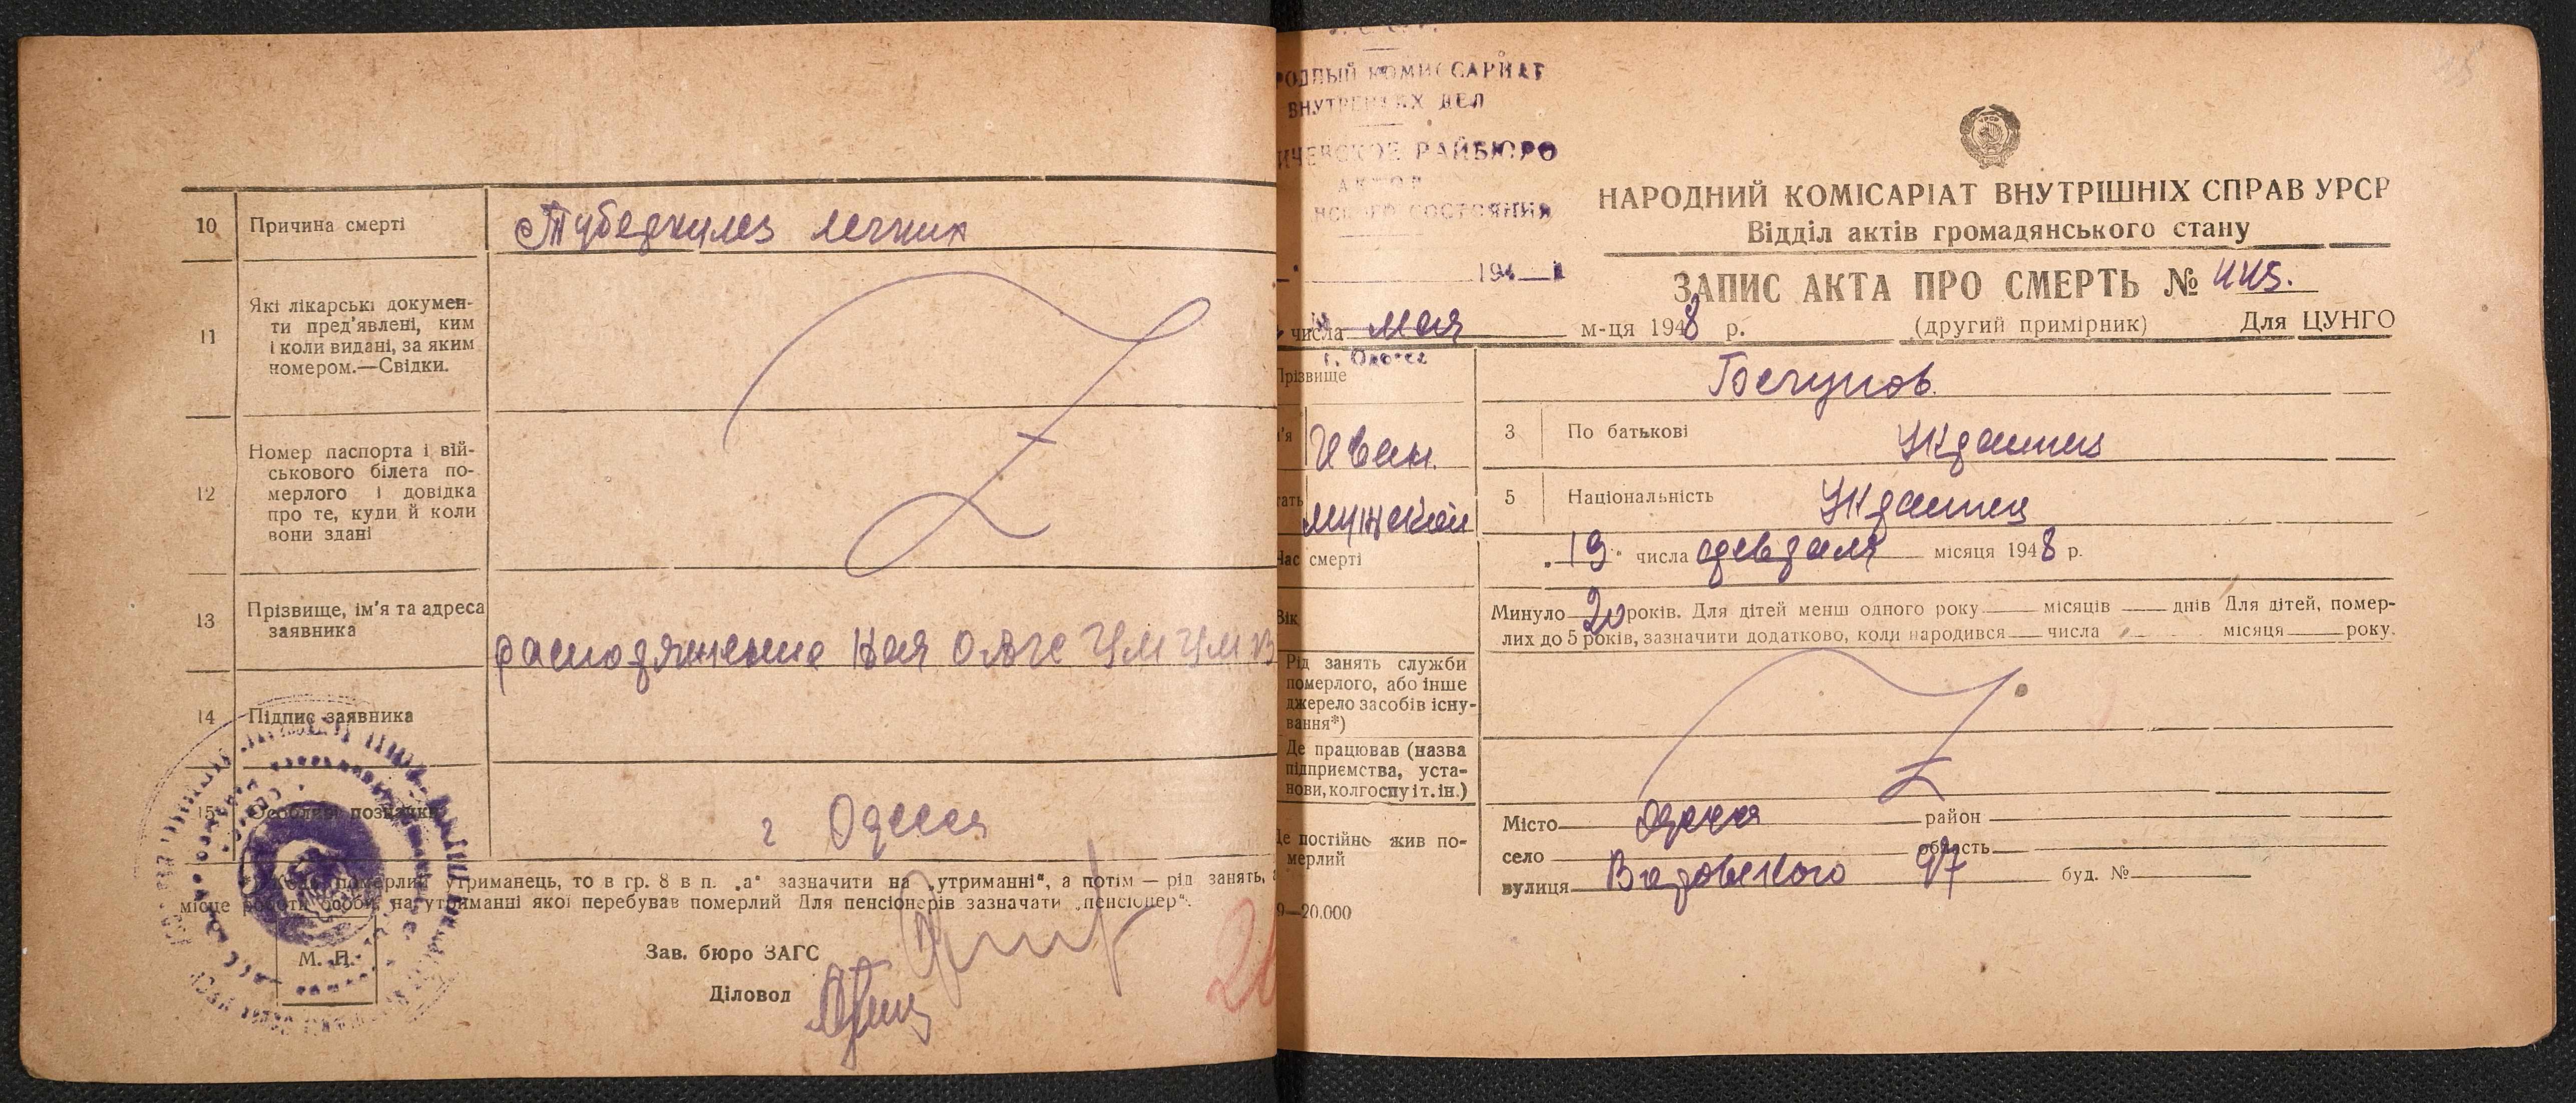 10 Причина смерті Туберкулез легких
11 Які лікарські докумен-
ти пред'явлені, ким
і коли видані, за яким
номером.—Свідки.
12 Номер паспорта і вій-
ськового білета по-
мерлого і довідка
про те, куди й коли
вони здані
13 Прізвище, ім'я та адреса
заявника
распоряжение
14 Підпис заявника
15 Особливі позначки
г Одесса
Коли померлий утриманець, то в гр. 8 в п. „а" зазначити на „утриманні", а потім — рід занять,
місце роботи особи, на утриманні якої перебував померлий Для пенсіонерів зазначати „пенсіонер".
Зав. бюро ЗАГС
М. П.
Діловод
РОДНЫЙ КОМИССАРИАТ
ВНУТРЕННИХ ДЕЛ
ИЧЕВСКОЕ РАЙБЮРО
АКТОВ
НСКОГО СОСТОЯНИЯ
194
г. Одесса
УРСР
НАРОДНИЙ КОМІСАРІАТ ВНУТРІШНІХ СПРАВ УРСР
Відділ актів громадянського стану
ЗАПИС АКТА ПРО СМЕРТЬ № 445.
числа мая м-ця 1948 р. (другий примірник) Для ЦУНГО
Прізвище Бегунов.
м'я Иван. 3 По батькові Украинец
тать мужской 5 Національність Украинец
Час смерті 19 числа февраля місяця 1948 р.
Вік Минуло 20 років. Для дітей менш одного року місяців днів Для дітей, помер-
лих до 5 років, зазначити додатково, коли народився числа місяця року.
Рід занять служби
померлого, або інше
джерело засобів існу-
вання*)
Де працював (назва
підприємства, уста-
нови, колгоспу і т. ін.)
Де постійно жив по-
мерлий
Місто Одесса район
село область
вулиця 97 буд. №
9—20.000